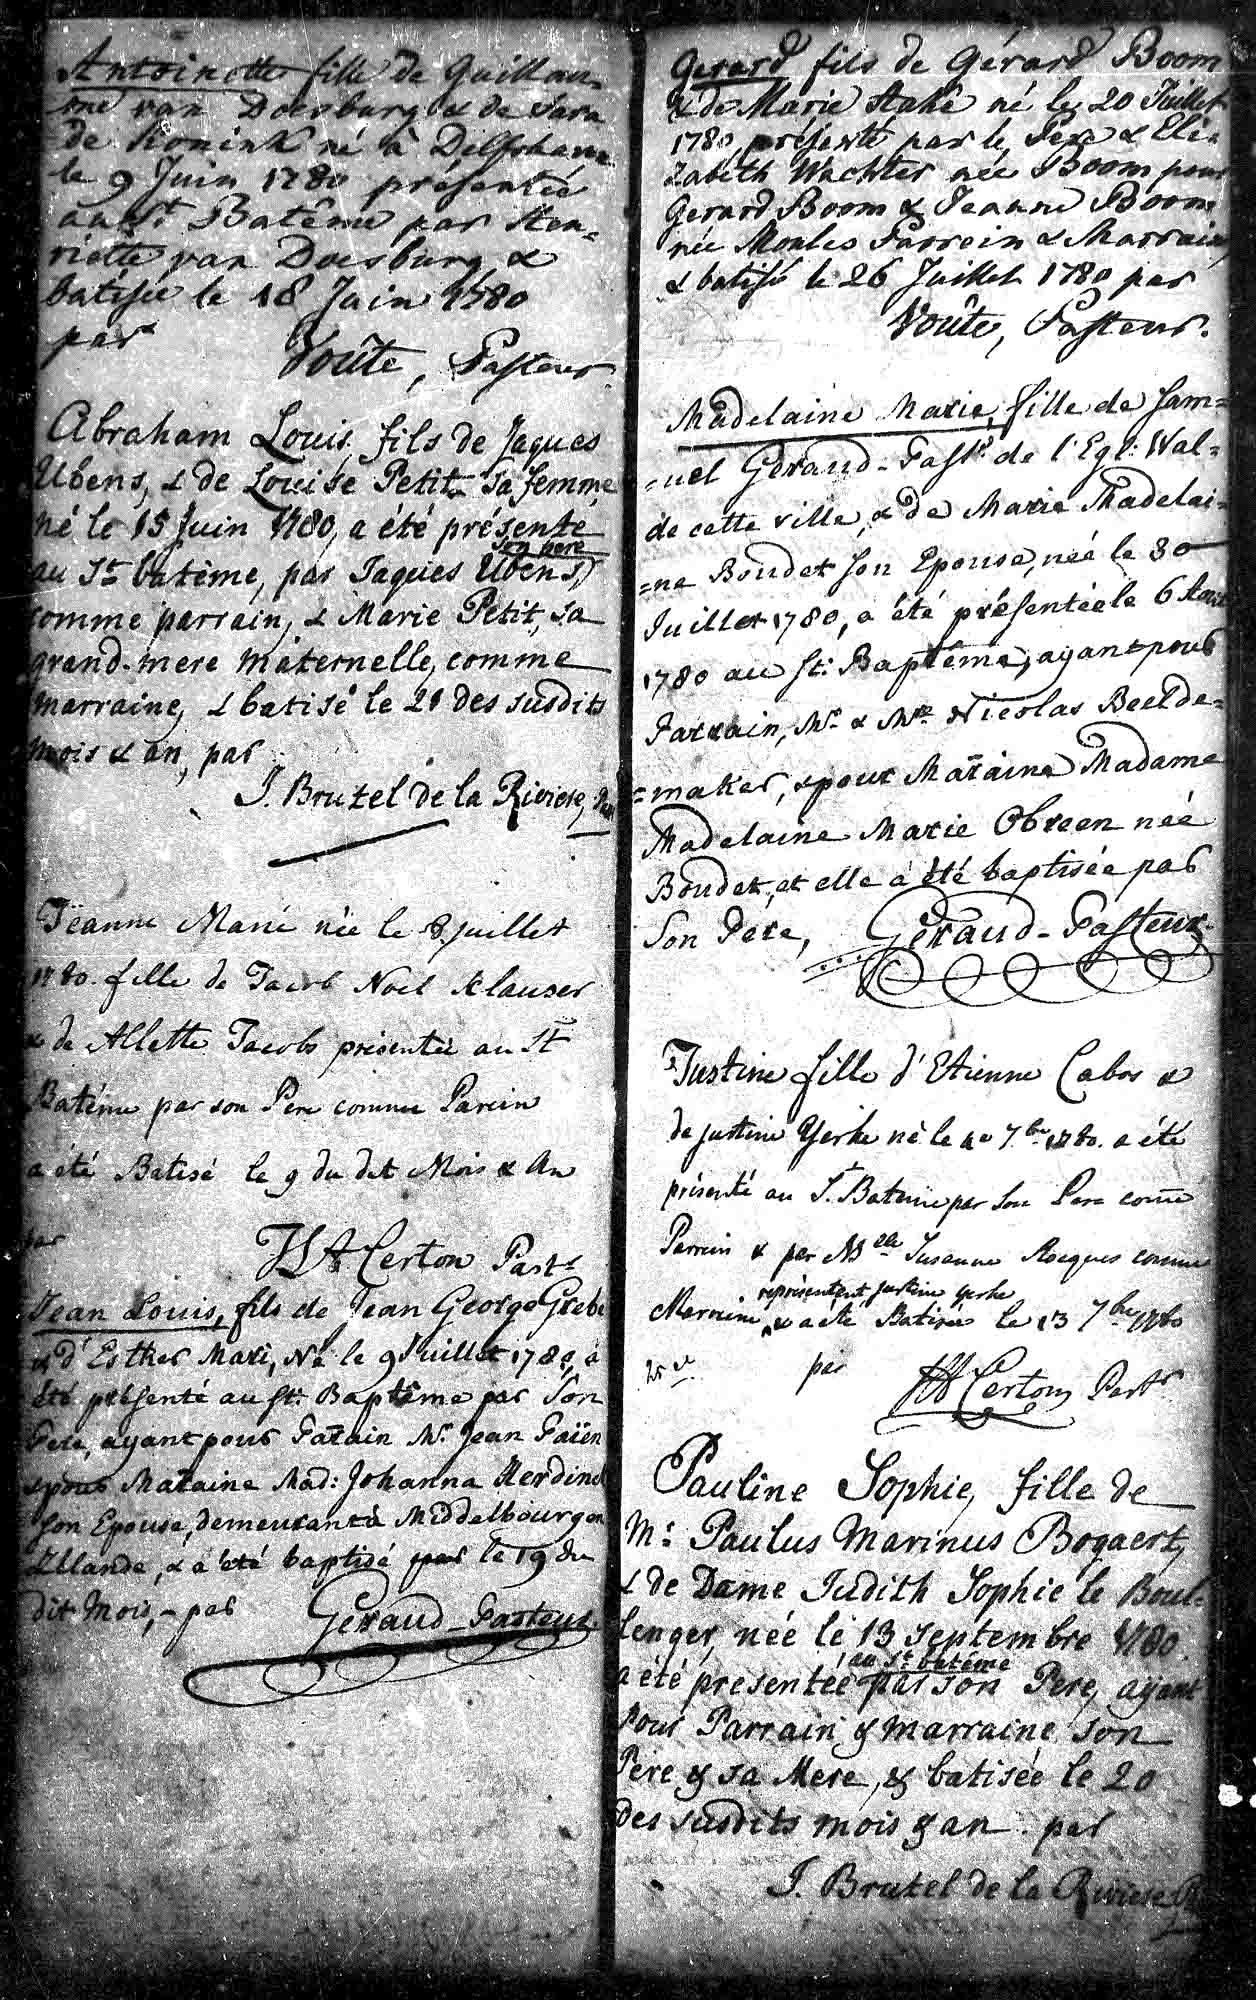 Antoinette fille de Guillau-
me van Doesburg & de Sara
de Konink né à Delfshave
le 9 Juin 1780 présentée
au St. Batême par Hen-
riette van Doesburg &
batisée le 18 Juin 1780
par
Voûte, Pasteur.
Abraham Louis, fils de Jaques
Ubens, & de Louise Petit sa femme,
né le 15 Juin 1780, a été présenté
son pere
au St. batême, par Jaques Ubens,
comme parrain, & Marie Petit, sa
grand-mere maternelle, comme
marraine, & batisé le 21 des susdits
mois & an, par
J. Brutel de la Riviere,
Jeanne Marie née le 8 juillet
1780. fille de Jacob Noël Klauser
& de Allette Jacobs présentée au St
Batéme par son Pere comme Parein
a été Batisé le 9 du dit Mois & An
par
Certon Past.r
Jean Louis, fils de Jean George Grebe
& d'Esther Mari, Né le 9 Juillet 1780, a
été présenté au St. Baptême par Son
Pere, ayant pour Parain Mr. Jean Païen
& pour Maraine Mad: Johanna Herdinck
son Epouse, demeurant à Middelbourg en
Zélande, & a été baptisé le 19 du
dit Mois, - par Géraud - Pasteur
Gerard fils de Gérard Boom
& de Marie Stahé né le 20 Juillet
1780, présenté par le Pere & Eli-
zabeth Wachter née Boom pour
Gerard Boom & Jeanne Boom
née Moules Parrein & Marraine,
& batisé le 26 Juillet 1780 par
Voûte, Pasteur.
Madelaine Marie, fille de Sam-
=uel Geraud - Pastr. de l'Egl: Wal=
de cette ville, & de Marie Madelai-
=ne Boudet son Epouse, née le 30
Juillet 1780, a été présentée le 6 Aout
1780 au St: Baptême, ayant pour
Parrain, Mr. & Nicolas Beelde=
=maker, & pour Maraine Madame
Madelaine Marie Obreen née
Boudet, et elle a été baptisée par
Son Pere, Géraud - Pasteur.
Justine fille d'Etienne Cabos &
de justine Yerke né le 7.bre 1780. a été
présenté au St. Bateme par son Pere come
Parrein & par Mlle Susanne Rocques comme
représentent justine Yerke
Mareine & a été Batisée le 13 7bre 1780
par
Certon Past.r
Pauline Sophie, fille de
Mr. Paulus Marinus Bogaert,
& de Dame Judith Sophie le Boul-
lenger, née le 13 Septembre 1780.
au St. batême
a été presentée par son Pere, ayant
pour Parrain & marraine son
Pere & sa Mere, & batisée le 20
des susdits mois & an. par
J. Brutel de la Riviere